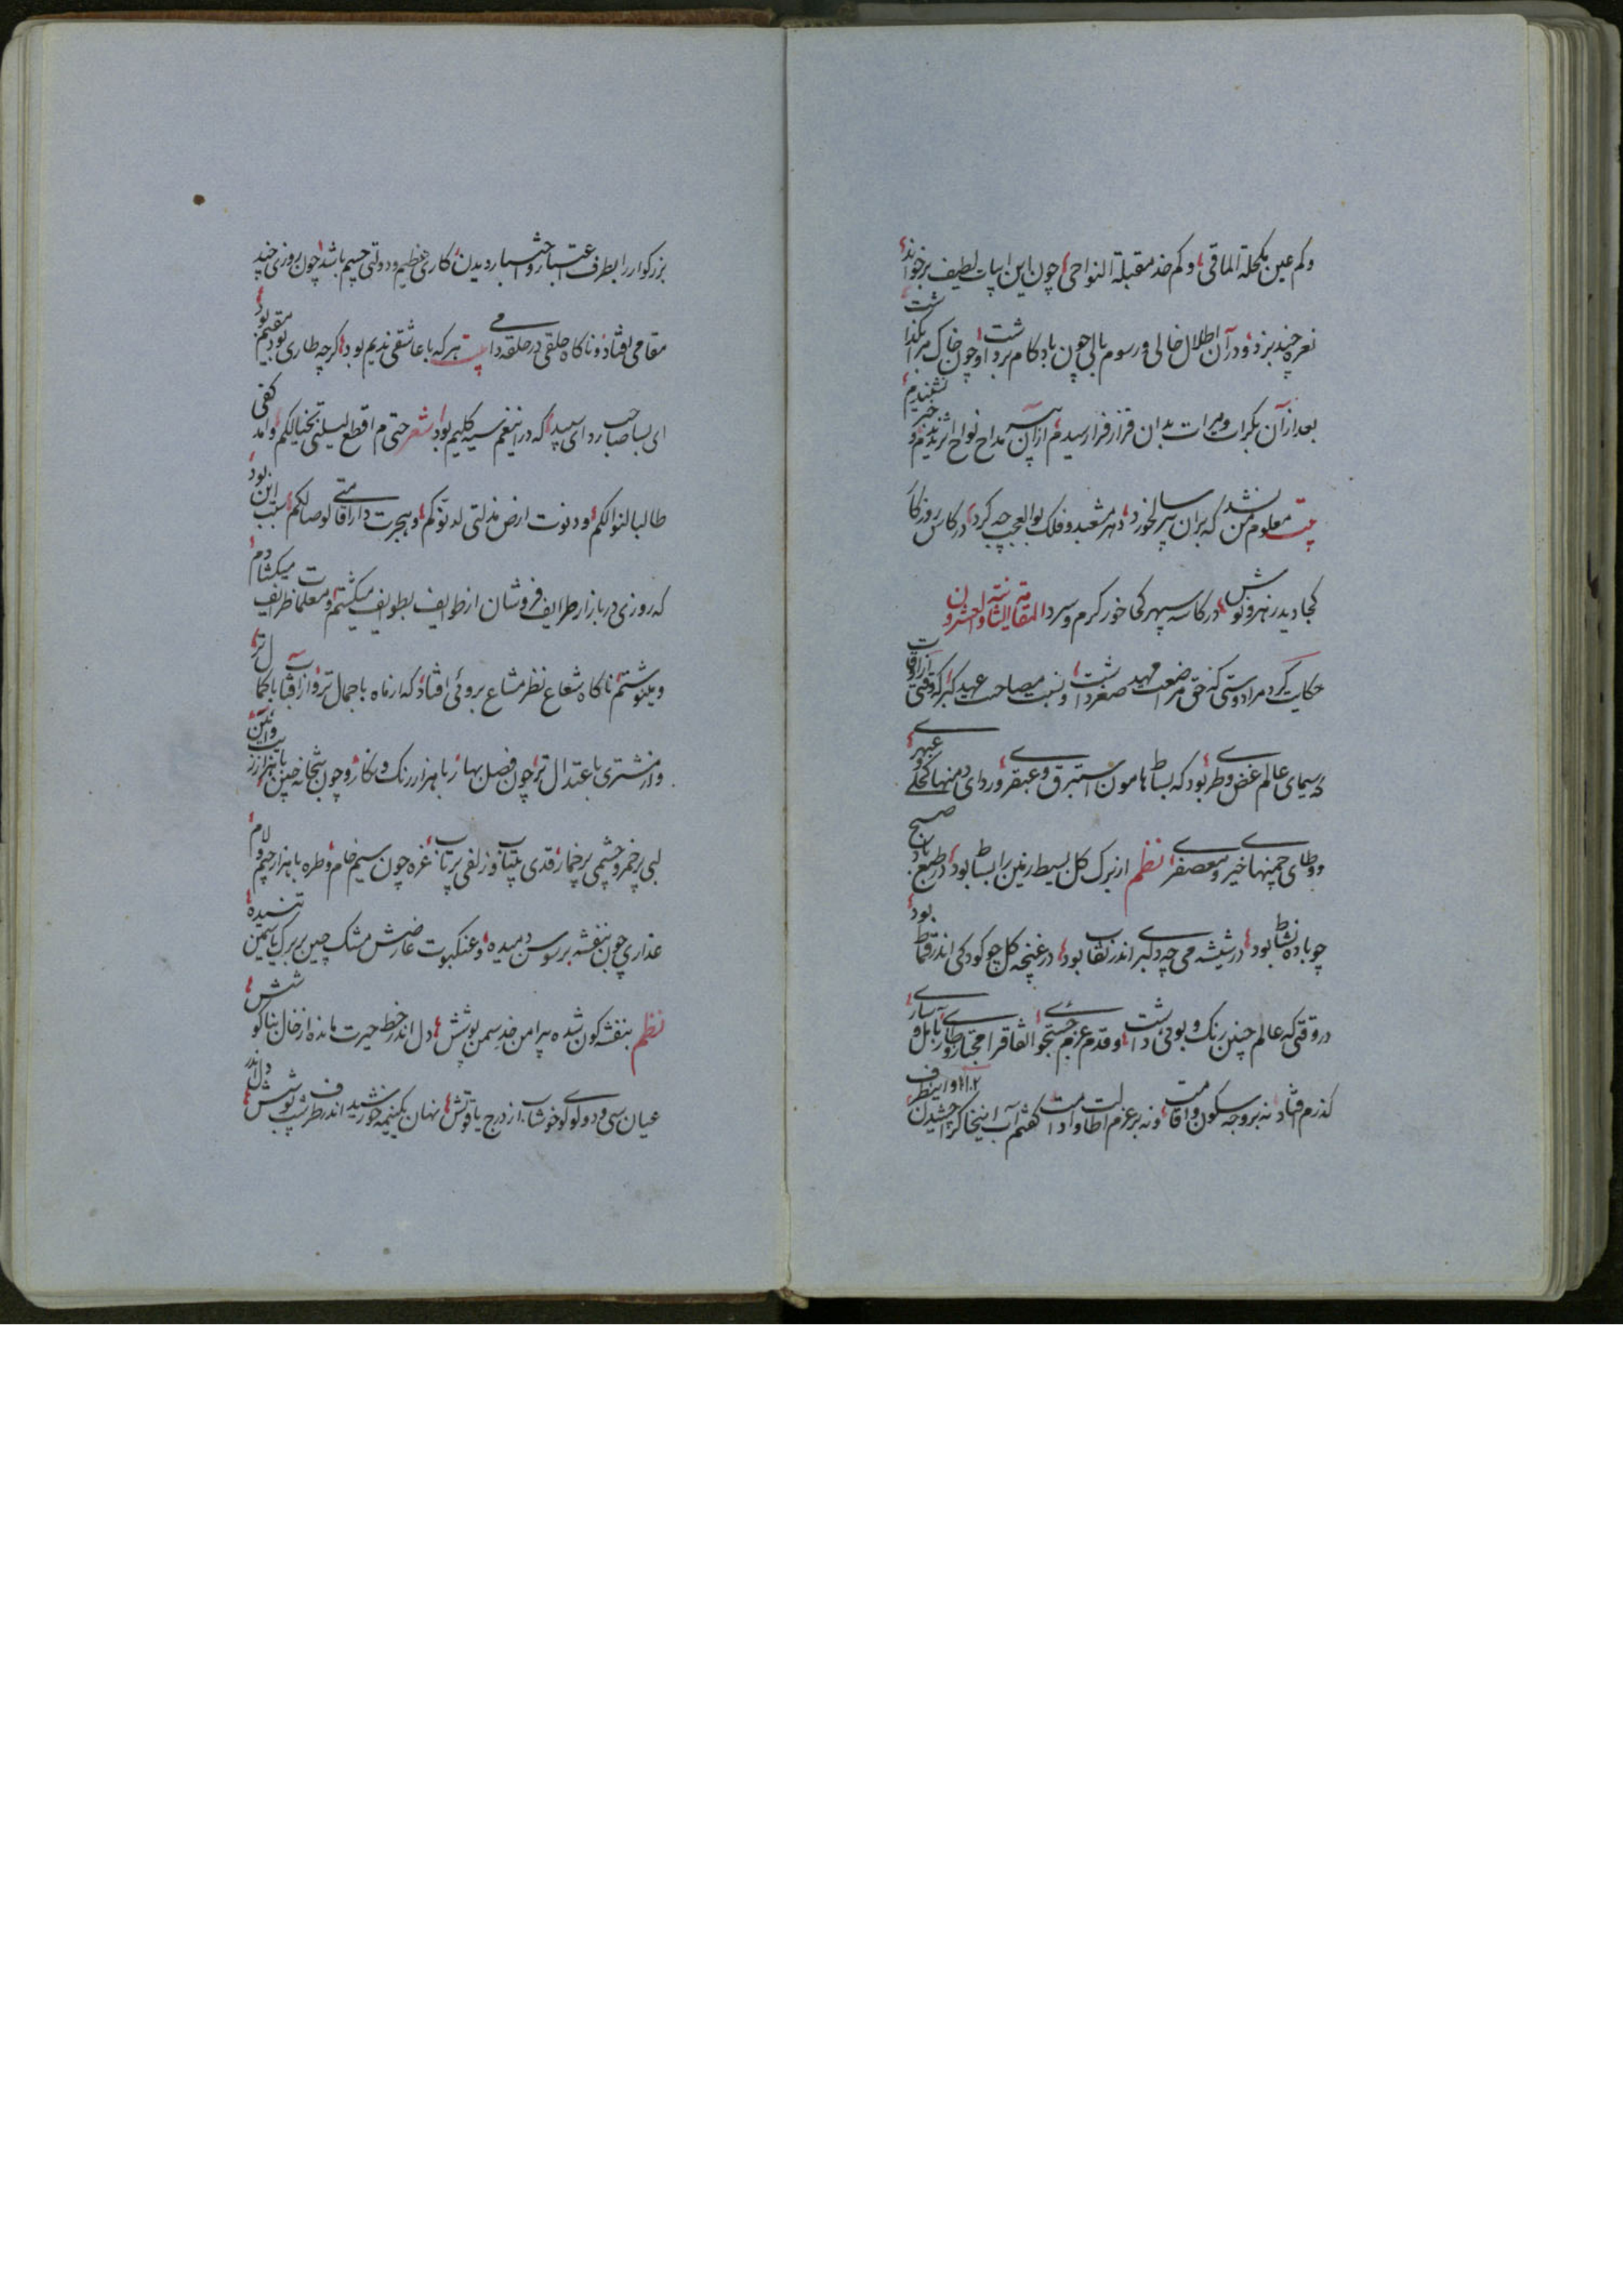 وکم عین مکحلة المآقی وکم خد مقبلة النواحی چون این ابیات لطیف برخواند
نعره چند بزد و در آن اطلال خالی و رسوم بالی چون باد گام برداشت و چون خاک مرا بگذاشت
بعد از آن بکرات و مرات بدان قرار فرا رسیدم از آن پیر مداح نواح اثر ندیدم و خبر نشنیدم
بیت معلوم من نشد که بران پیر سالخورد دهر مشعبد و فلک بوالعجب چه کرد در کاس روزگار
کجا دید زهر و نوش در کاسه سپهر کجا خورد گرم و سرد المقامة الثانیة والعشرون
حکایت کرد مرا دوستی که حق مراضعت مهد صغر داشت و نسبت مصاحبت عهد کبر که وقتی از اوقات
که سیمای عالم غض و طری بود که بساط هامون استبرق و عبقری و ردای دمنها کحلی و عبهری
و وطای چمنها خیری و معصفری نظم از برگ گل بسیط زمین را بساط بود در طبع باد صبح
چو باده نشاط بود در شیشه می چه دلبری اندر نقاب بود در غنچه گل چو کودکی اندر قماط بود
در وقتی که عالم چنین رنگ و بوئی داشت و قدم عزم جستجوئی اتفاق را مجتاز وار بابل و ساری
گذرم افتاد نه بر وجه سکون و اقامت و نه بر عزم اطالت و ادامت گفتم آب اینجا که چشیدن و این طرف
بزرگوار را بطرف اعتبار و اختبار دیدن کاری عظیم و دولتی جسیم باشد چون روزی چند
مقامی افتاد و ناگاه حلقی در حلقه دامی بیت هر که با عاشقی ندیم بود گرچه طاری بود مقیم بود
ای بسا صاحب ردای سپید که درین غم سیه گلیم بود شعر حتی م اقطع لیلتی بخیالکم وامد کفی
طالبا لنوالکم ودنوت ارض مذلتی لدنوکم وهجرت دار اقامتی لوصالکم سبب این بود
که روزی در بازار طرایف فروشان از طوایف بطوایف میگشتم و معلمات ظرایف میگشادم
و مینوشتم ناگاه شعاع نظر مشاع بروئی افتاد که از ماه با جمال تر و از آفتاب با کمال تر
و از مشتری با عتدال تر چون فصل بهار با هزار رنگ و نگار و چون بتخانه چین با هزار زیب و آیین
لبی پر خمر و چشمی پر خمار قدی بی تاب و زلفی پر تاب غره چون سیم خام و طره با هزار جیم و لام
عذاری چون بنفشه بر سوسن دمیده و عنکبوت عارضش مشک چین بر برگ یاسمین تنیده
نظم بنفشه گون شده پیرامن خد سمن پوشش دل اندر خط حیرت مانده از خال بناگوشش
عیان سی و دو لولو خوشاب از درج یاقوتش نهان یک نیمه خورشید اندر طرف شب پوشش دل اندر